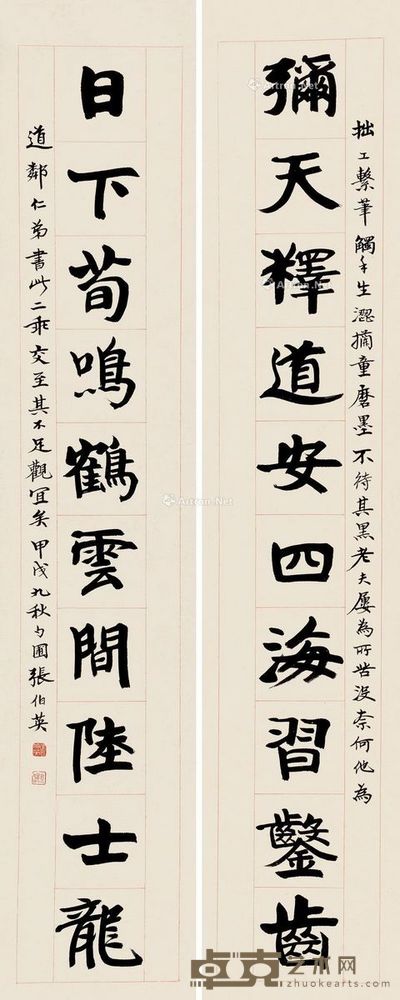 拙工繫筆觸手生澀擿童磨墨不待其黑老夫屢為所苦沒奈何他為
彌天釋道安四海習鑿齒
日下荀鳴鶴雲間陸士龍
道鄰仁弟書此二乖交至其不足觀宜矣甲戌九秋勺圃張伯英
Artron.Net
Artron.Net
卓克艺术网
zhuokearts.com